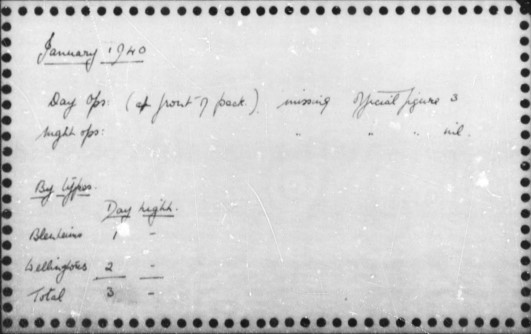 January 1940
Day Ops: (at front of pack.) missing official figure 3
Night ops: " " " nil.
By types.
Day night.
Blenheims 1 -
Wellingtons 2 -
Total 3 -